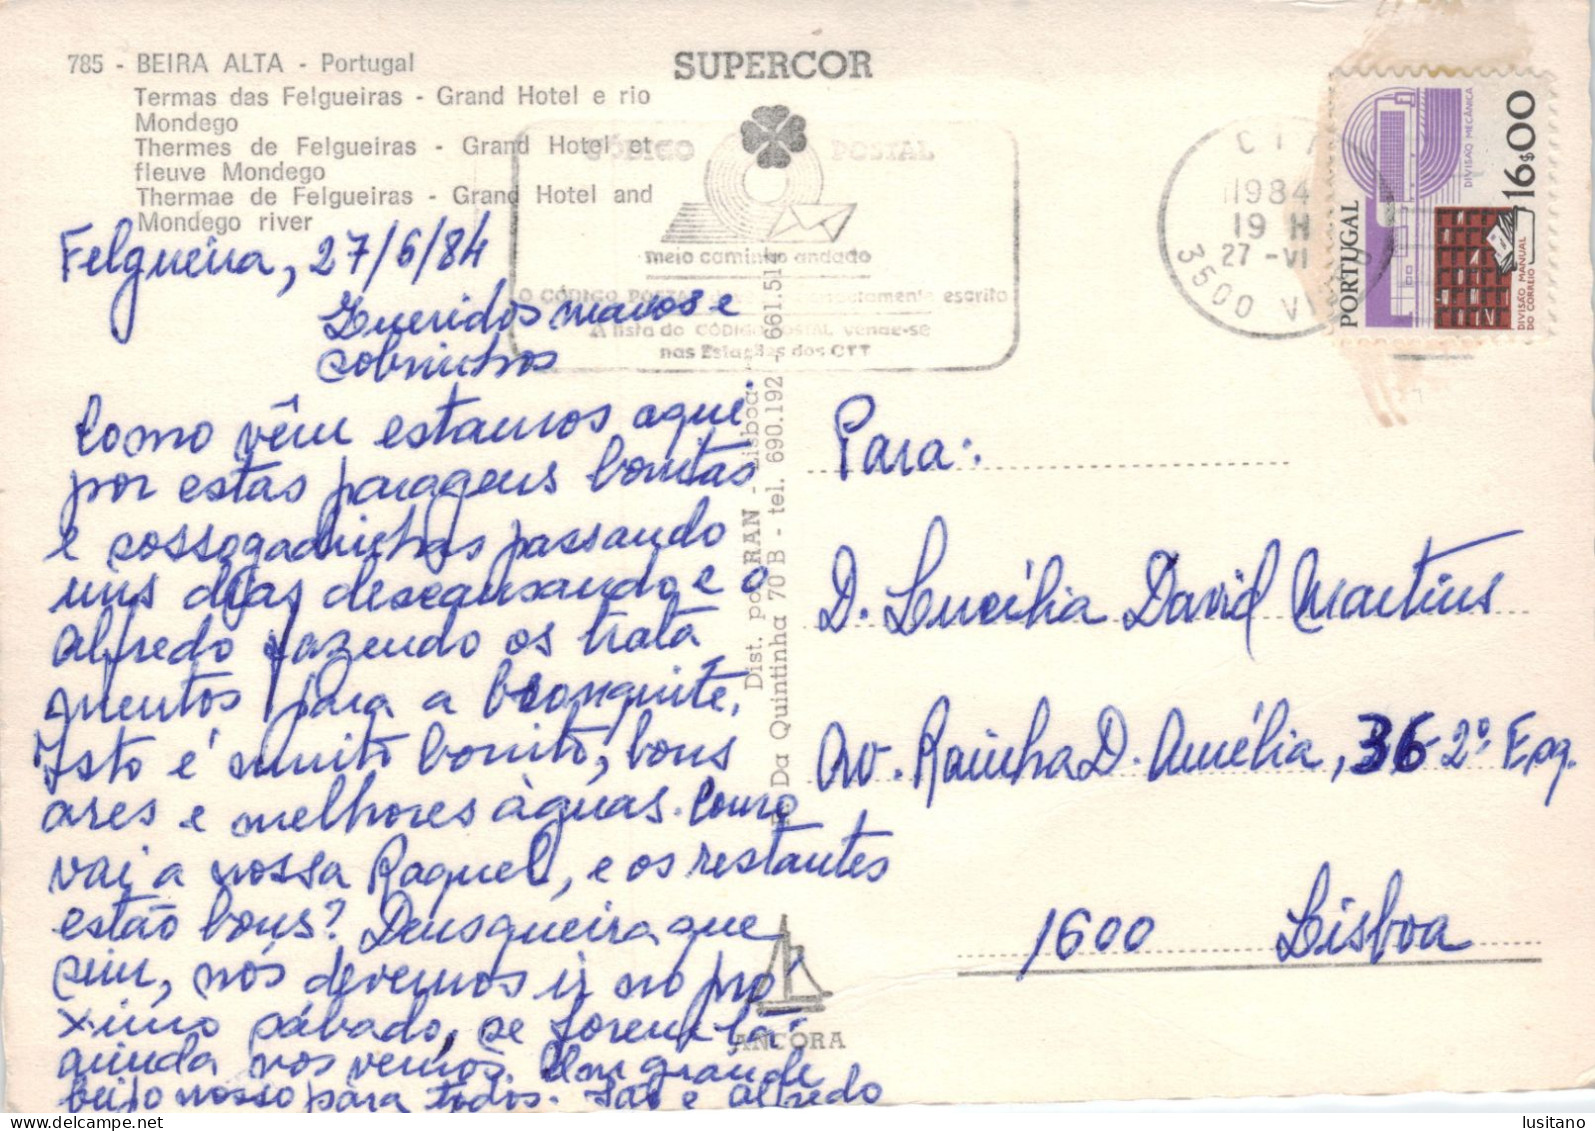 785 - BEIRA ALTA - Portugal
Termas das Felgueiras - Grand Hotel e rio
Mondego
Thermes de Felgueiras - Grand Hotel et
fleuve Mondego
Thermae de Felgueiras - Grand Hotel and
Mondego river
SUPERCOR
CÓDIGO POSTAL
meio caminho andado
O CÓDIGO POSTAL escrito
A lista do CÓDIGO POSTAL vende-se
nas Estações dos CTT
1984
19 H
27 - VI
3500
PORTUGAL
16$00
DIVISÃO MECÂNICA
DIVISÃO MANUAL
DO CORREIO
Felgueira, 27/6/84
Queridos manos e
sobrinhos
Como vêm estamos aqui
por estas paragens bonitas
e sossegadinhas passando
uns dias descansando e o
Alfredo fazendo os trata
mentos para a bronquite.
Isto é muito bonito, bons
ares e melhores àguas. Como
vai a nossa Raquel, e os restantes
estão bons? Deus queira que
sim, nós devemos ir no pró
ximo sábado, se forem lá
ainda nos vemos. Um grande
beijo nosso para todos. e Alfredo
Dist. por RAN - Lisboa
R. Da Quintinha 70 B - tel. 690.192 - 661.51
ANCORA
Para:
D. Lucília David Martins
Av. Rainha D. Amélia, 36-2º Esq.
1600 Lisboa
lusitano